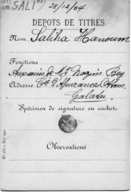 SALI
28/2/04
DÉPOTS DE TITRES
Nom Saliha Hanoum
Fonctions
de Nazim Bey
Adresse Cie d'Assurances
Galata
Spécimen de signature ou cachets
Observations